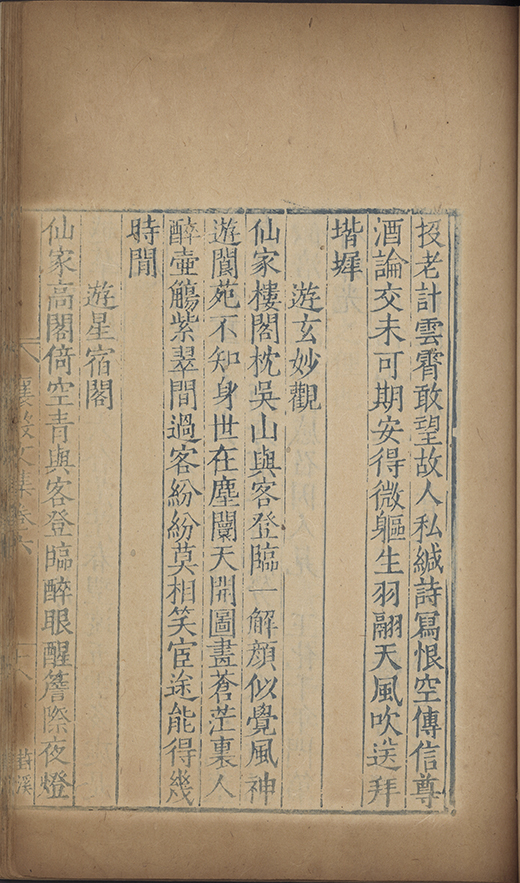 投老計雲霄敢望故人私緘詩寫恨空傳信尊
酒論交未可期安得微軀生羽翮天風吹送拜
堦墀
遊玄妙觀
仙家樓閣枕吳山與客登臨一解顏似覺風神
遊閬苑不知身世在塵闤天開圖畫蒼茫裏人
醉壺觴紫翠間過客紛紛莫相笑宦途能得幾
時閒
遊星宿閣
仙家高閣倚空青與客登臨醉眼醒簷際夜燈